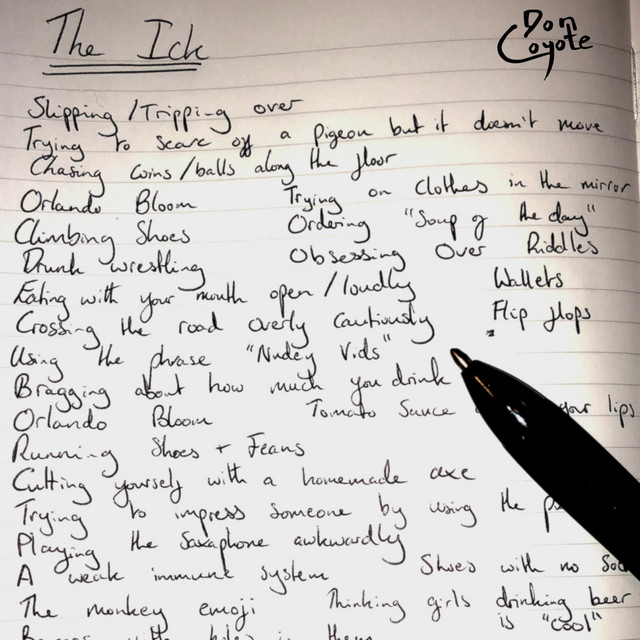 The Ick
Don
Coyote
Slipping/Tripping over
Trying to scare off a pigeon but it doesn't move
Chasing coins/balls along the floor
Orlando Bloom
Trying on clothes in the mirror
Climbing Shoes
Ordering "Soup of the day"
Drunk wrestling
Obsessing Over Riddles
Eating with your mouth open/loudly
Wallets
Crossing the road overly cautiously
Flip flops
Using the phrase "Nudey Vids"
Bragging about how much you drink
Orlando Bloom
Tomato Sauce your lips
Running Shoes + Jeans
Cutting yourself with a homemade axe
Trying to impress someone by using the
Playing the Saxaphone awkwardly
A weak immune system
Shoes with no
The monkey emoji
Thinking girls drinking beer
is "cool"